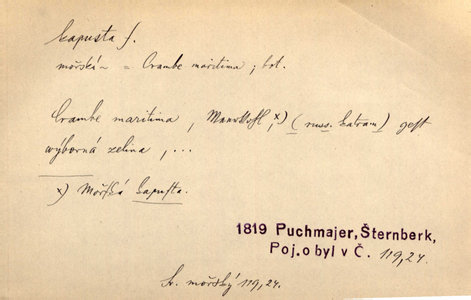 kapusta f.
mořská ~ = Crambe maritima; bot.
Crambe maritima, x) (rus. Katran) gest
wýborná zelina, ...
x) Mořská kapusta.
1819 Puchmajer, Šternberk,
Poj. o byl v Č. 119,24.
Sv. mořský 119,24.